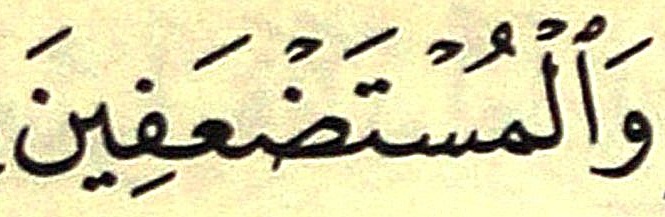 وَٱلْمُسْتَضْعَفِينَ